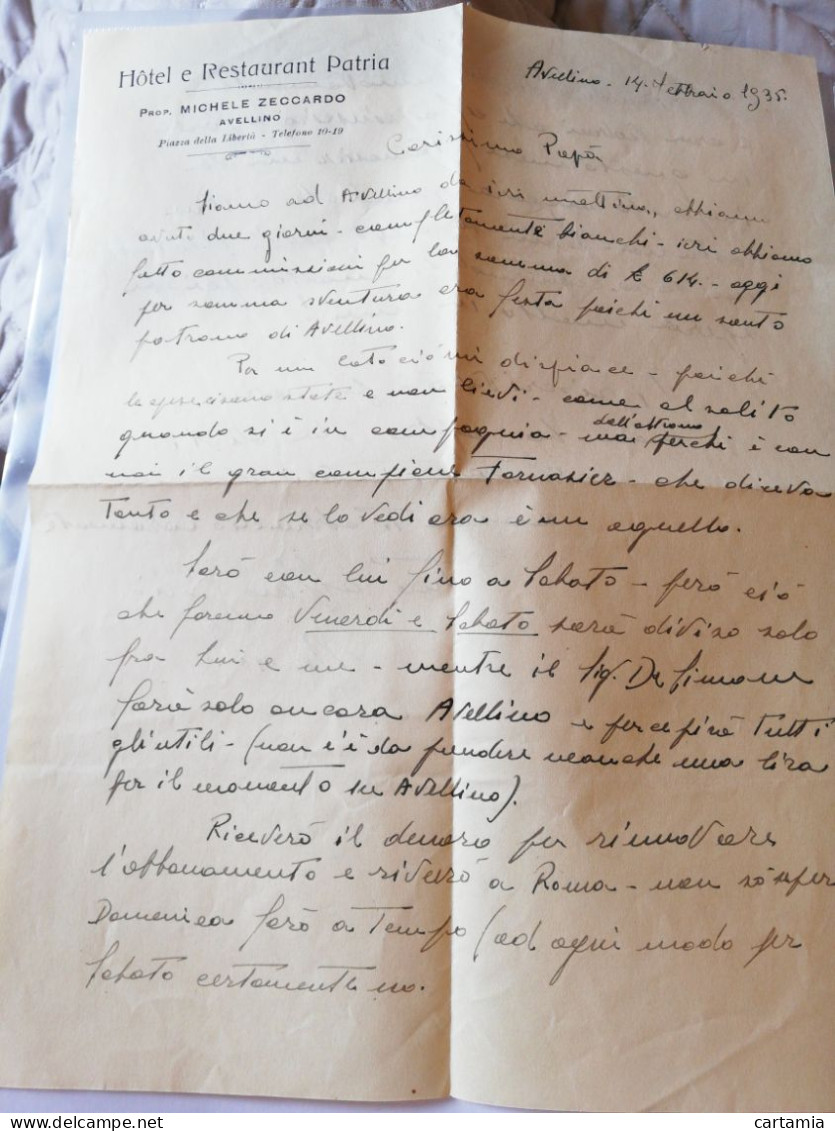 Hôtel e Restaurant Patria
PROP. MICHELE ZECCARDO
AVELLINO
Piazza della Libertà - Telefono 10-19
Avellino. 14. Febbraio 1935.
Carissimo Papà
Siamo ad Avellino da ieri mattina, abbiamo
avuti due giorni - completamente bianchi - ieri abbiamo
fatto commissioni per la somma di £ 614. - oggi
per somma sventura era festa poichè un santo
patrono di Avellino.
Da un lato ciò mi dispiace - poichè
le spese sono state e non lievi - come al solito
quando si è in compagnia - dall'altro no perchè è con
noi il gran campione Fornasier - che diceva
tanto e che se lo vedi ora è un agnello.
Sarò con lui fino a Sabato - però ciò
che faremo Venerdì e Sabato sarà diviso solo
fra lui e me - mentre il Sig. De Simone
farà solo ancora Avellino e percepirà tutti
gli utili - (non c'è da prendere neanche una lira
per il momento su Avellino).
Riceverò il denaro per rinnovare
l'abbonamento e riverrò a Roma - non sò se per
Domenica farò a tempo (ad ogni modo per
Sabato certamente no.
cartamia